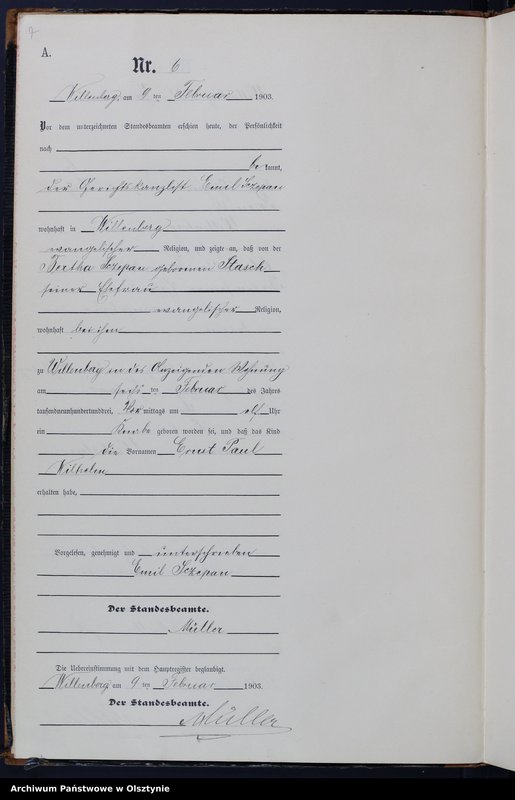 A.
Nr. 6
Willenberg, am 9 ten Februar 1903.
Vor dem unterzeichneten Standesbeamten erschien heute, der Persönlichkeit
nach
be kannt,
der Gerichtskanzlist Emil Sczepan
wohnhaft in Willenberg
evangelischer Religion, und zeigte an, daß von der
Bertha Sczepan geborenen Stasch
seiner Ehefrau
evangelischer Religion,
wohnhaft bei ihm
zu Willenberg in des Anzeigenden Wohnung
am sechs ten Februar des Jahres
tausendneunhundertunddrei, Vor mittags um elf Uhr
ein Knabe geboren worden sei, und daß das Kind
die Vornamen Ernst Paul
Wilhelm
erhalten habe,
Vorgelesen, genehmigt und unterschrieben
Emil Sczepan
Der Standesbeamte.
Müller
Die Uebereinstimmung mit dem Hauptregister beglaubigt.
Willenberg, am 9 ten Februar 1903.
Der Standesbeamte.
Müller
Archiwum Państwowe w Olsztynie